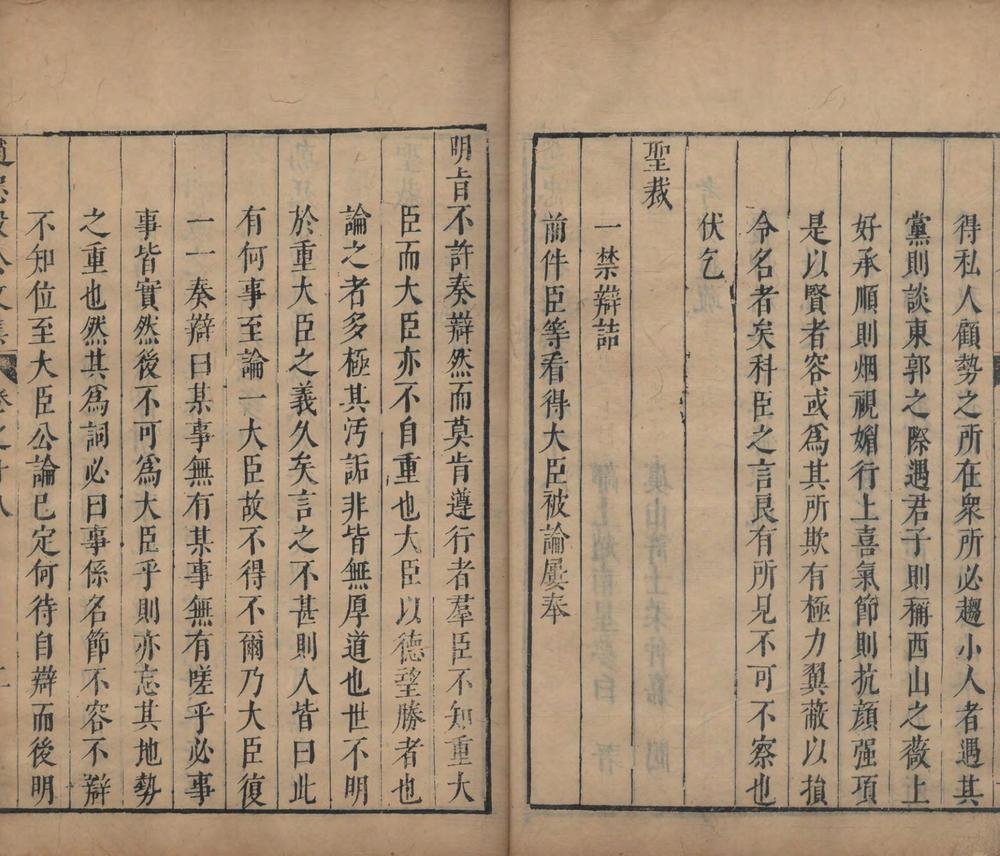 得私人顧勢之所在衆所必趨小人者遇其
黨則談東郭之際遇君子則稱西山之薇上
好承順則烟視媚行上喜氣節則抗顔强項
是以賢者容或爲其所欺有極力翼蔽以損
令名者矣科臣之言良有所見不可不察也
伏乞
聖裁
一禁辯詰
前件臣等看得大臣被論屢奉
明旨不許奏辯然而莫肯遵行者羣臣不知重大
臣而大臣亦不自重也大臣以德望勝者也
論之者多極其汚詬非皆無厚道也世不明
於重大臣之義久矣言之不甚則人皆曰此
有何事至論一大臣故不得不爾乃大臣復
一一奏辯曰某事無有某事無有嗟乎必事
事皆實然後不可爲大臣乎則亦忘其地勢
之重也然其爲詞必曰事係名節不容不辯
不知位至大臣公論已定何待自辯而後明
趙忠毅公文集 卷之十八